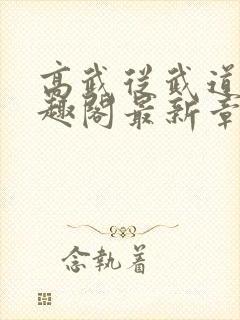 高武从武道
趣阁最新章
念执着